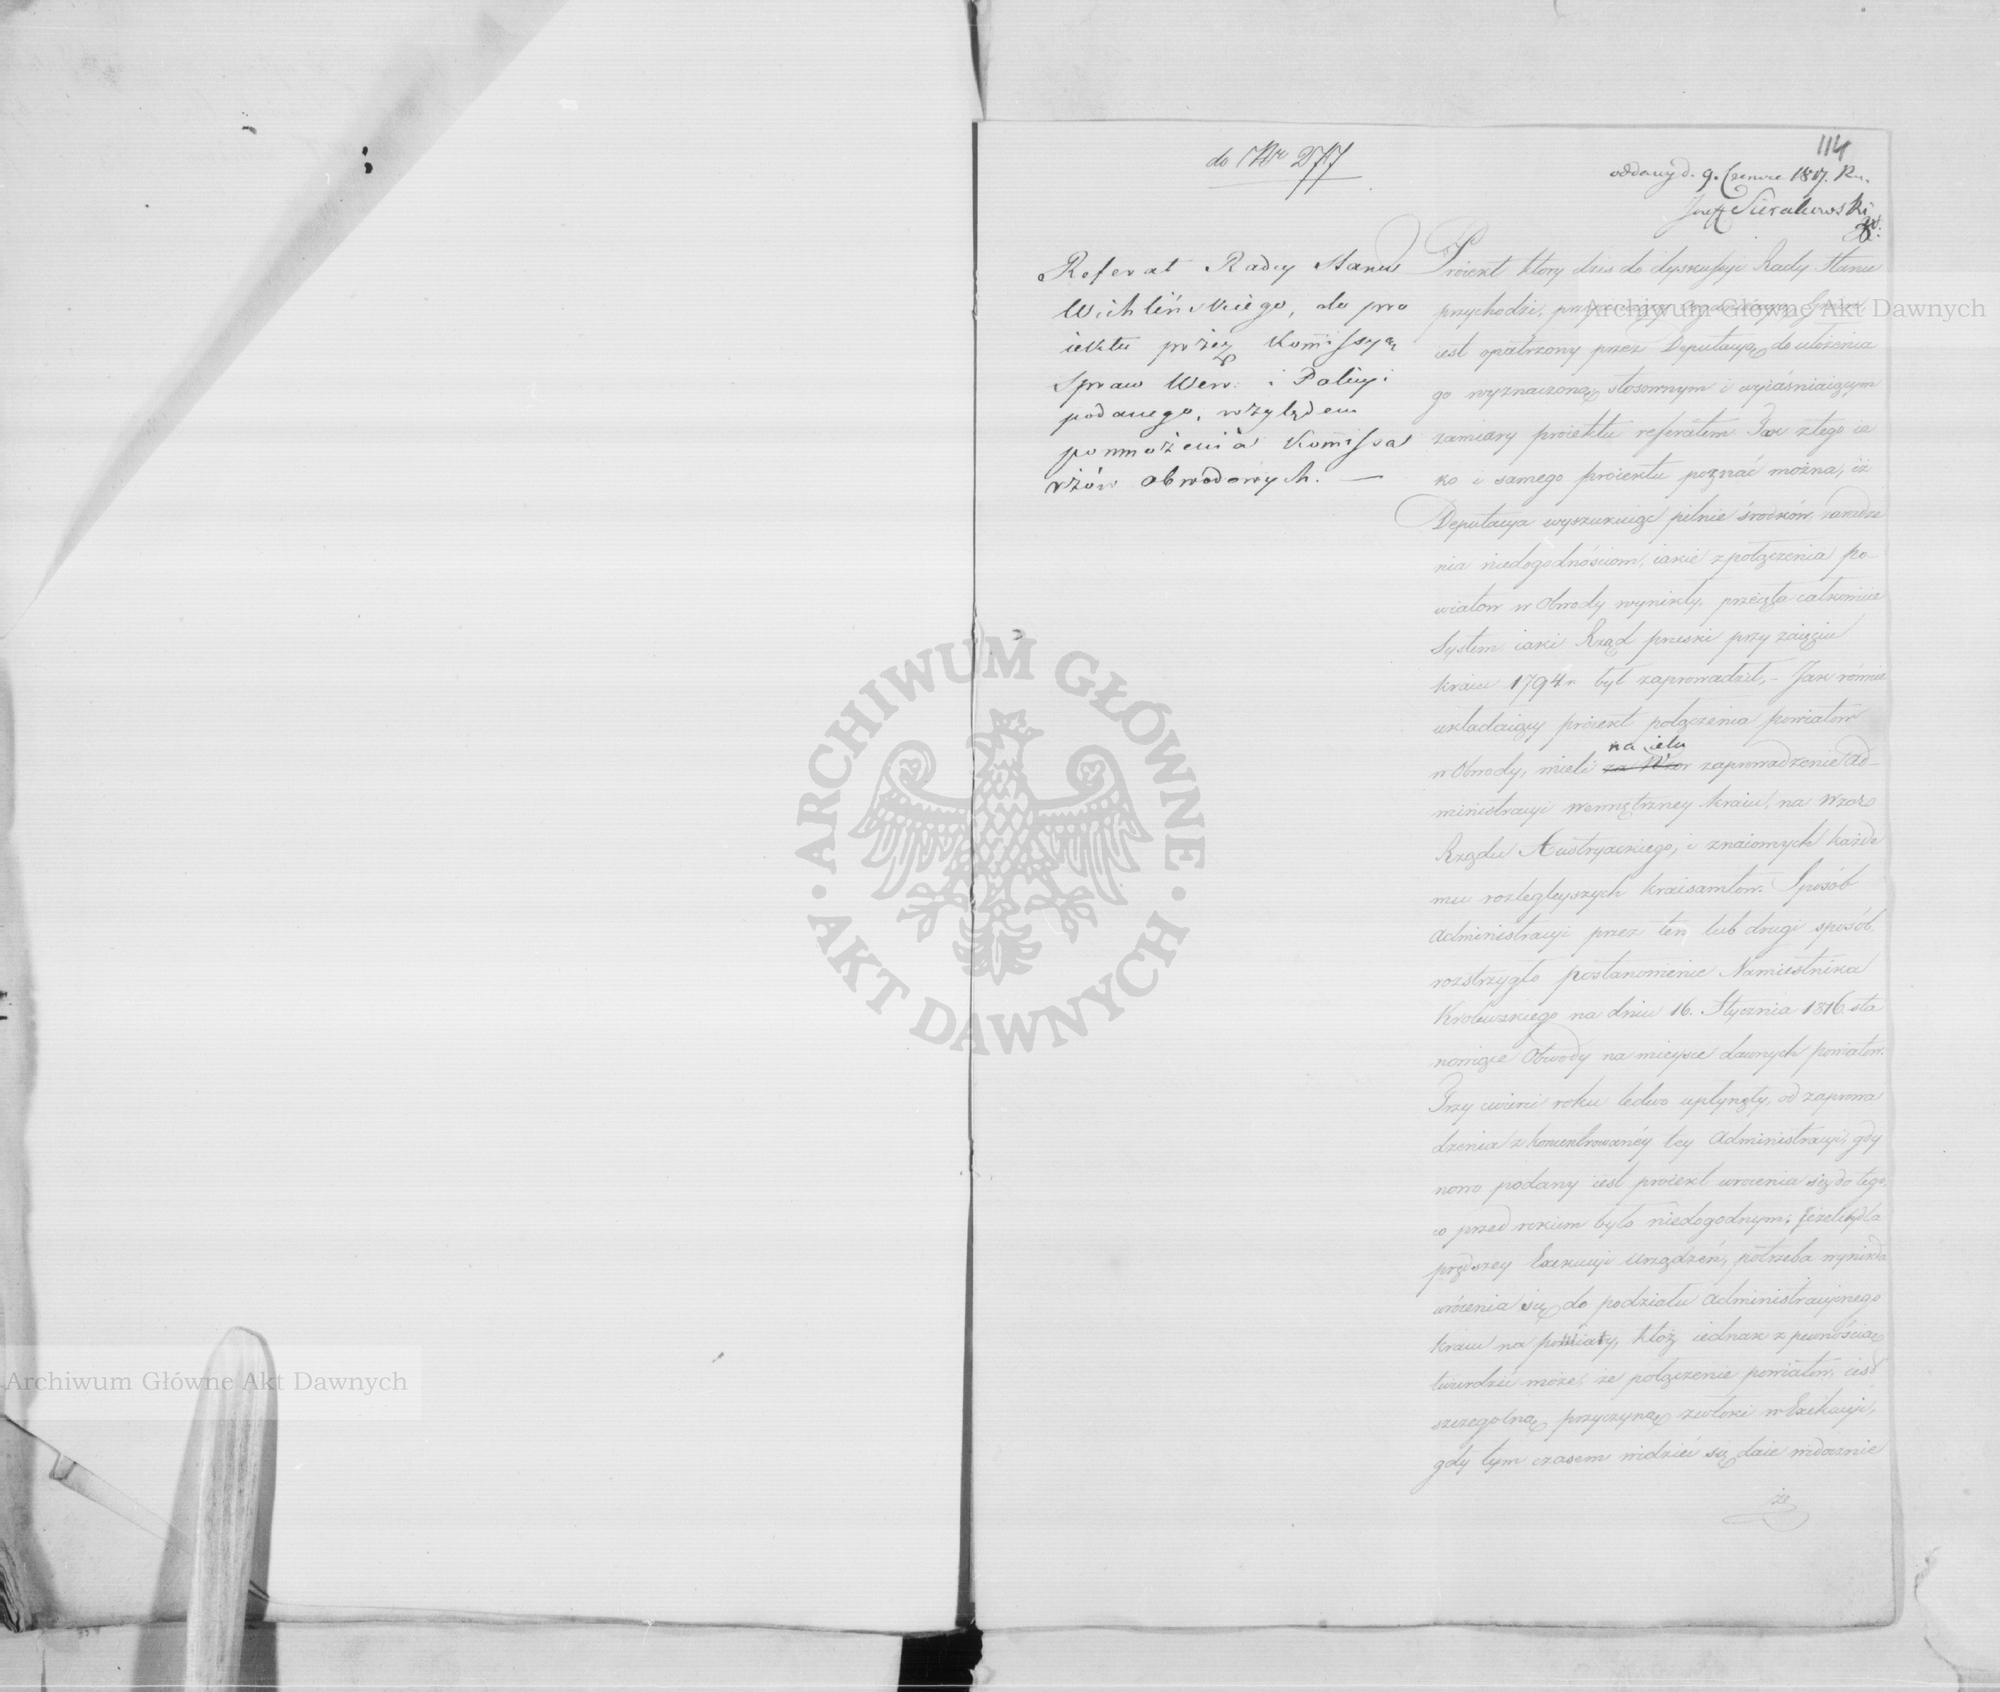 114
do Nro 277
oddany d. 9. Czerwca 1817. Rn.
Józef Sierakowski
Referat Radcy Stanu
Wichlińskiego, do pro
iektu przez Kommissyą
Spraw Wew: i Policyi
podanego, względem
pomnożenia Kommissa
rzów obwodowych. —
Proiekt ktory dziś do dyskussyi Rady Stanu
przychodzi,
iest opatrzony przez Deputacyą do ułożenia
go wyznaczoną, stosownym i wyiaśniaiącym
zamiary proiektu referatem. Jak z tego ia
ko i samego proiektu poznać można, iż
Deputacya wyszukuiąc pilnie środków, zaradze
nia niedogodnościom, iakie z połączenia po-
wiatow w Obwody wynikły, przeięła całkowicie
System iaki Rząd pruski przy zaięciu
kraiu 1794 r. był zaprowadził, – Jak równie
układaiący proiekt połączenia powiatow
w Obwody, mieli na celu za Wzor zaprowadzenie Ad-
ministracyi wewnętrzney kraiu, na wzor
Rządu Austryackiego, i znaiomych każde
mu rozległeyszych kraisamtow. Sposób
Administracyi przez ten lub drugi sposób
rozstrzygło postanowienie Namiestnika
Krolewskiego na dniu 16. Stycznia 1816. sta
nowiące Obwody na mieysce dawnych powiatow.
Trzy cwierci roku ledwo upłynęły, od zaprowa
dzenia zkoncentrowanéy tey Administracyi, gdy
nowo podany iest proiekt wrocenia się do tego,
co przed rokiem było niedogodnym; Jeżeli dla
prędszey Exekucyi urządzeń, potrzeba wynikła
wrócenia się do podziału administracyinego
kraiu na powiaty, któż iednak z pewnością
twierdzić może, że połączenie powiatow, iest
szczegolną przyczyną zwłoki w Exekucyi,
gdy tym czasem widzieć się daie widocznie
że
Archiwum Główne Akt Dawnych
Archiwum Główne Akt Dawnych
ARCHIWUM GŁÓWNE
AKT DAWNYCH